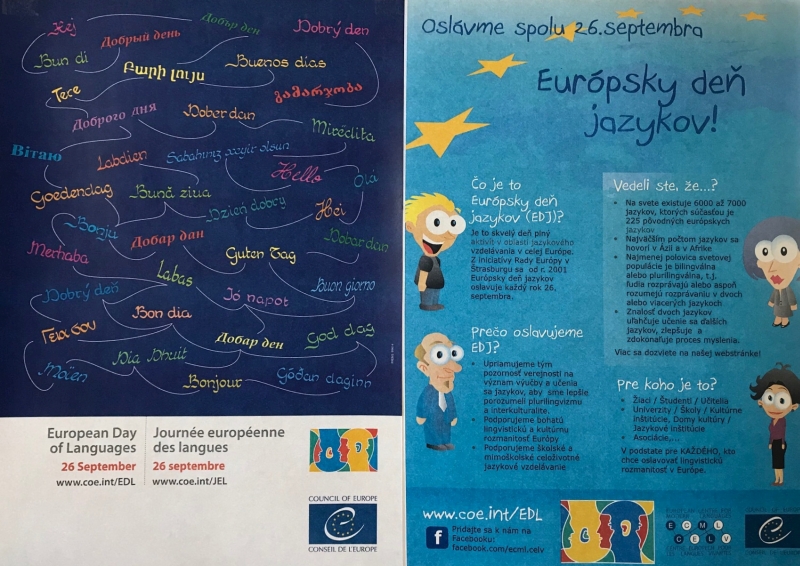 Hej
Добрый день
Добър ден
Dobrý den
Bun di
Բարի լույս
Buenos días
Tere
გამარჯობა
Доброго дня
Dober dan
Mirëdita
Вітаю
Labdien
Sabahınız xeyir olsun
Hello
Olá
Goedendag
Bună ziua
Dzień dobry
Hei
Bonju
Добар дан
Dobar dan
Merhaba
Labas
Guten Tag
Dobrý deň
Jó napot
Buon giorno
Γεια σου
Bon dia
Добар ден
God dag
Moïen
Dia Dhuit
Bonjour
Góðan daginn
European Day
of Languages
26 September
www.coe.int/EDL
Journée européenne
des langues
26 septembre
www.coe.int/JEL
COUNCIL OF EUROPE
CONSEIL DE L'EUROPE
Oslávme spolu 26.septembra
Európsky deň
jazykov!
Čo je to
Európsky deň
jazykov (EDJ)?
Je to skvelý deň plný
aktivít v oblasti jazykového
vzdelávania v celej Európe.
Z iniciatívy Rady Európy v
Štrasburgu sa od r. 2001
Európsky deň jazykov
oslavuje každý rok 26.
septembra.
Prečo oslavujeme
EDJ?
• Upriamujeme tým
pozornosť verejnosti na
význam výučby a učenia
sa jazykov, aby sme lepšie
porozumeli plurilingvizmu
a interkulturalite.
• Podporujeme bohatú
lingvistickú a kultúrnu
rozmanitosť Európy
• Podporujeme školské a
mimoškolské celoživotné
jazykové vzdelávanie
Vedeli ste, že...?
• Na svete existuje 6000 až 7000
jazykov, ktorých súčasťou je
225 pôvodných európskych
jazykov
• Najväčším počtom jazykov sa
hovorí v Ázii a v Afrike
• Najmenej polovica svetovej
populácie je bilingválna
alebo plurilingválna, t.j.
ľudia rozprávajú alebo aspoň
rozumejú rozprávaniu v dvoch
alebo viacerých jazykoch
• Znalosť dvoch jazykov
uľahčuje učenie sa ďalších
jazykov, zlepšuje a
zdokonaľuje proces myslenia.
Viac sa dozviete na našej webstránke!
Pre koho je to?
• Žiaci / Študenti / Učitelia
• Univerzity / Školy / Kultúrne
inštitúcie, Domy kultúry /
Jazykové inštitúcie
• Asociácie,...
V podstate pre KAŽDÉHO, kto
chce oslavovať lingvistickú
rozmanitosť v Európe.
www.coe.int/EDL
Pridajte sa k nám na
Facebooku:
facebook.com/ecml.celv
ECML
CELV
COUNCIL OF EUROPE
CONSEIL DE L'EUROPE